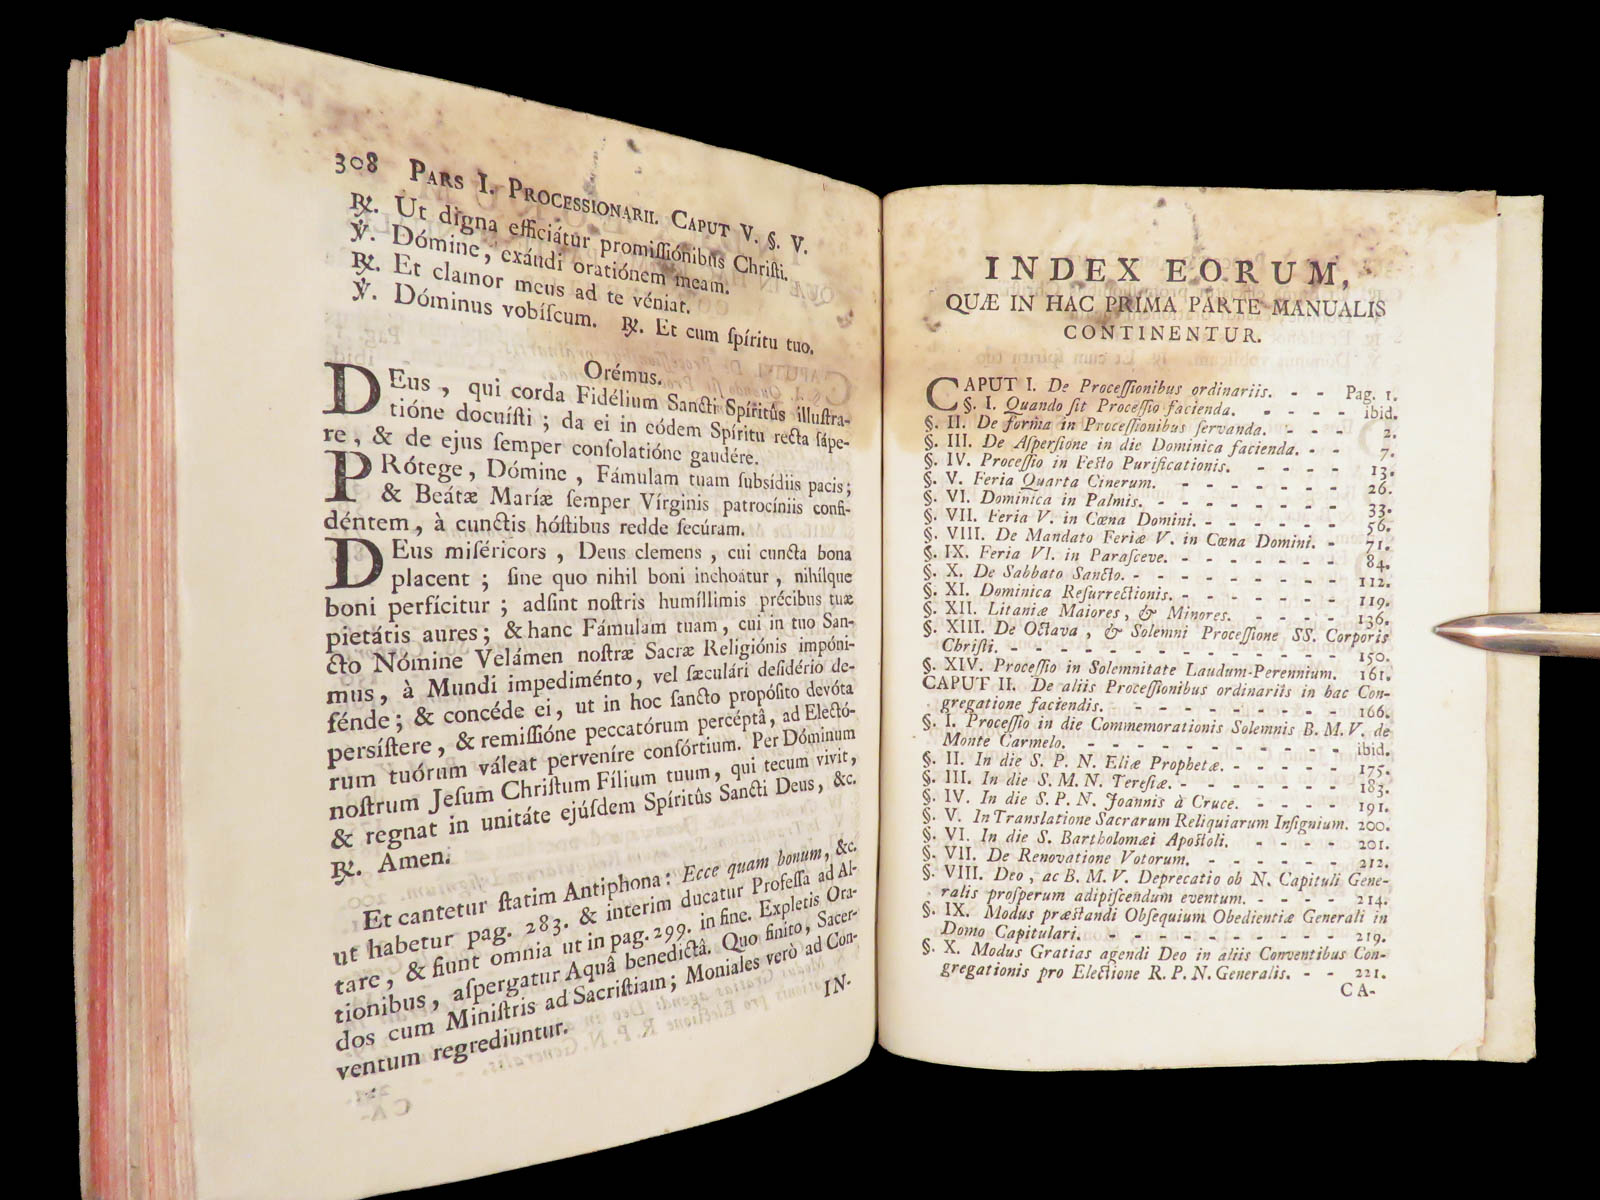 308 PARS I. PROCESSIONARII. CAPUT V. §. V.
℟. Ut digna efficiátur promiſſiónibus Chriſti.
℣. Dómine, exáudi oratiónem meam.
℟. Et clamor meus ad te véniat.
℣. Dóminus vobíſcum. ℟. Et cum ſpíritu tuo.
Orémus.
DEus, qui corda Fidélium Sancti Spíritûs illuſtra-
tióne docuíſti; da ei in eódem Spíritu recta ſápe-
re, & de ejus ſemper conſolatióne gaudére.
PRótege, Dómine, Fámulam tuam ſubsídiis pacis;
& Beátæ Maríæ ſemper Vírginis patrocíniis confi-
déntem, à cunctis hóſtibus redde ſecúram.
DEus miſéricors, Deus clemens, cui cuncta bona
placent; ſine quo nihil boni inchoatur, nihílque
boni perfícitur; adſint noſtris humíllimis précibus tuæ
pietátis aures; & hanc Fámulam tuam, cui in tuo San-
cto Nómine Velámen noſtræ Sacræ Religiónis impóni-
mus, à Mundi impediménto, vel ſæculári deſidério de-
fénde; & concéde ei, ut in hoc ſancto propóſito devóta
perſíſtere, & remiſſióne peccatórum percéptâ, ad Electó-
rum tuórum váleat perveníre conſórtium. Per Dóminum
noſtrum Jeſum Chriſtum Fílium tuum, qui tecum vivit,
& regnat in unitáte ejúſdem Spíritûs Sancti Deus, &c.
℟. Amen.
Et cantetur ſtatim Antiphona: Ecce quam bonum, &c.
ut habetur pag. 283. & interim ducatur Profeſſa ad Al-
tare, & fiunt omnia ut in pag. 299. in fine. Expletis Ora-
tionibus, aſpergatur Aquâ benedictâ. Quo finito, Sacer-
dos cum Miniſtris ad Sacriſtiam; Moniales verò ad Con-
ventum regrediuntur.
IN-
INDEX EORUM,
QUÆ IN HAC PRIMA PARTE MANUALIS
CONTINENTUR.
CAPUT I. De Proceſſionibus ordinariis. - - Pag. 1.
§. I. Quando ſit Proceſſio facienda. - - - - - ibid.
§. II. De forma in Proceſſionibus ſervanda. - - - 2.
§. III. De Aſperſione in die Dominica facienda. - - 7.
§. IV. Proceſſio in Feſto Purificationis. - - - - 13.
§. V. Feria Quarta Cinerum. - - - - - - - 26.
§. VI. Dominica in Palmis. - - - - - - - 33.
§. VII. Feria V. in Cœna Domini. - - - - - - 56.
§. VIII. De Mandato Feriæ V. in Cœna Domini. - 71.
§. IX. Feria VI. in Paraſceve. - - - - - - - 84.
§. X. De Sabbato Sancto. - - - - - - - - 112.
§. XI. Dominica Reſurrectionis. - - - - - - - 119.
§. XII. Litaniæ Maiores, & Minores. - - - - - 136.
§. XIII. De Octava, & Solemni Proceſſione SS. Corporis
Chriſti. - - - - - - - - - - - - - 150.
§. XIV. Proceſſio in Solemnitate Laudum-Perennium. 161.
CAPUT II. De aliis Proceſſionibus ordinariis in hac Con-
gregatione faciendis. - - - - - - - - - 166.
§. I. Proceſſio in die Commemorationis Solemnis B. M. V. de
Monte Carmelo. - - - - - - - - - - - ibid.
§. II. In die S. P. N. Eliæ Prophetæ. - - - - - 175.
§. III. In die S. M. N. Tereſiæ. - - - - - - - 183.
§. IV. In die S. P. N. Joannis à Cruce. - - - - 191.
§. V. In Translatione Sacrarum Reliquiarum Inſignium. 200.
§. VI. In die S. Bartholomæi Apoſtoli. - - - - 201.
§. VII. De Renovatione Votorum. - - - - - - 212.
§. VIII. Deo, ac B. M. V. Deprecatio ob N. Capituli Gene-
ralis proſperum adipiſcendum eventum. - - - - 214.
§. IX. Modus præſtandi Obſequium Obedientiæ Generali in
Domo Capitulari. - - - - - - - - - - 219.
§. X. Modus Gratias agendi Deo in aliis Conventibus Con-
gregationis pro Electione R. P. N. Generalis. - - 221.
CA-